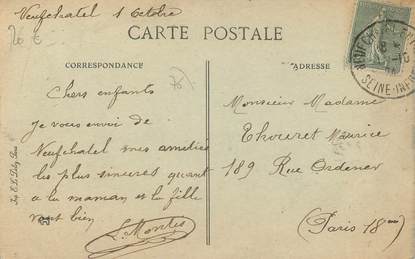 Neufchatel 1 Octobre
20 E
CARTE POSTALE
CORRESPONDANCE
ADRESSE
Chers enfants
Je vous envoi de
Neufchatel mes amitiés
les plus sincères quant
à la maman et la fille
vont bien
Monsieur Madame
Thouret Maurice
189 Rue Ordener
(Paris 18me)
SEINE-INF